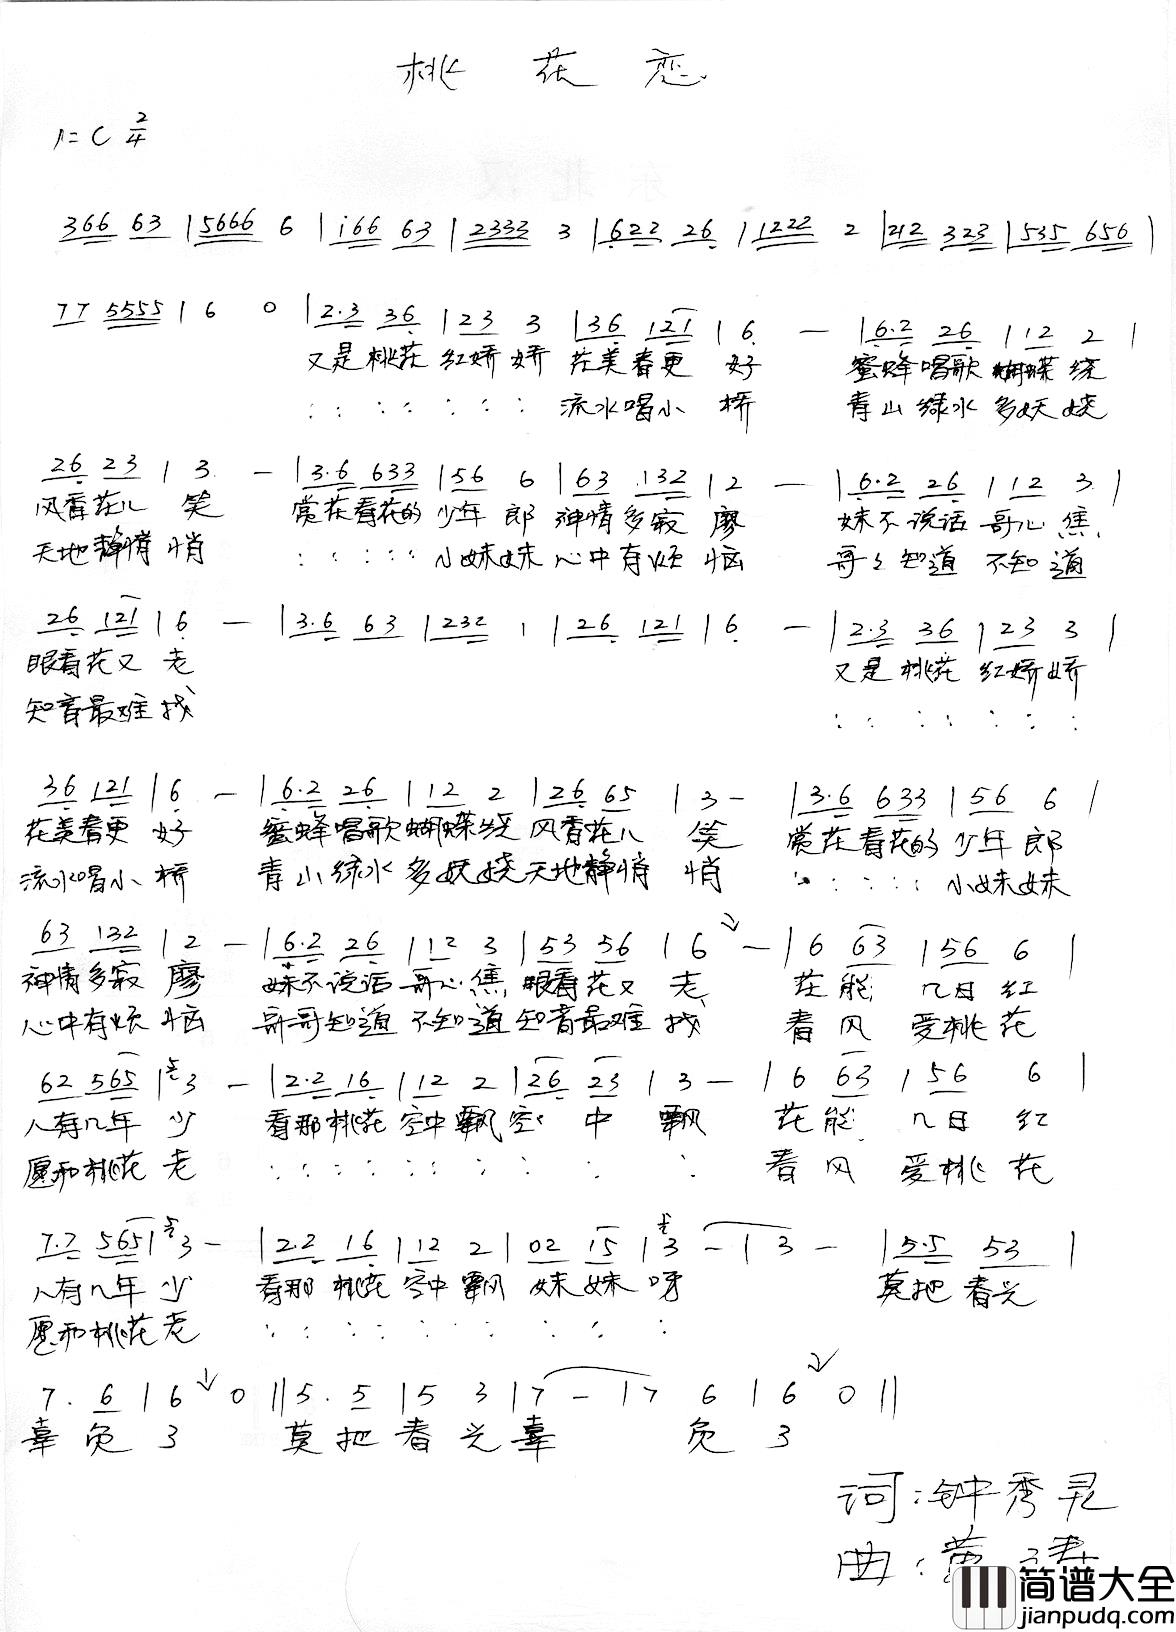 桃花恋
1=C 2/4
366 63 | 5666 6 | i66 63 | 2333 3 | 622 26 | 1222 2 | 212 323 | 535 656 |
77 5555 | 6 0 | 2·3 36 | 23 3 | 36 121 | 6 — | 6·2 26 | 12 2 |
又是桃花 红娇娇 花美春更 好 蜜蜂唱歌 蝴蝶绕
: : : : : : : 流水唱小 桥 青山绿水 多妖娆
26 23 | 3 — | 3·6 633 | 56 6 | 63 132 | 2 — | 6·2 26 | 12 3 |
风香花儿 笑 赏花看花的 少年郎 神情多寂 廖 妹不说话 哥心焦
天地静悄 悄 : : : : : 小妹妹 心中有烦 恼 哥哥知道 不知道
26 121 | 6 — | 3·6 63 | 232 1 | 26 121 | 6 — | 2·3 36 | 23 3 |
眼看花又 老 又是桃花 红娇娇
知音最难 找 : : : : : : :
36 121 | 6 — | 6·2 26 | 12 2 | 26 65 | 3 — | 3·6 633 | 56 6 |
花美春更 好 蜜蜂唱歌 蝴蝶绕 风香花儿 笑 赏花看花的 少年郎
流水唱小 桥 青山绿水 多妖娆 天地静悄 悄 : : : : : 小妹妹
63 132 | 2 — | 6·2 26 | 12 3 | 53 56 | 6 — | 6 63 | 56 6 |
神情多寂 廖 妹不说话 哥心焦 眼看花又 老 花能 几日 红
心中有烦 恼 哥哥知道 不知道 知音最难 找 春风 爱桃 花
62 565 | 3 — | 2·2 16 | 12 2 | 26 23 | 3 — | 6 63 | 56 6 |
人有几年 少 看那桃花 空中飘 空 中 飘 花能 几日 红
愿和桃花 老 : : : : : : : : : : 春风 爱桃 花
7·7 565 | 3 — | 2·2 16 | 12 2 | 02 15 | 3 — | 3 — | 5·5 53 |
人有几年 少 看那 桃花 空中 飘 妹妹呀 莫把 春光
愿和桃花 老 : : : : : : : : : :
7· 6 | 6 0 || 5· 5 | 5 3 | 7 — | 7 6 | 6 0 ||
辜负了 莫把春光辜 负了
词:钟秀灵
曲:黄
简谱大全
jianpudq.com